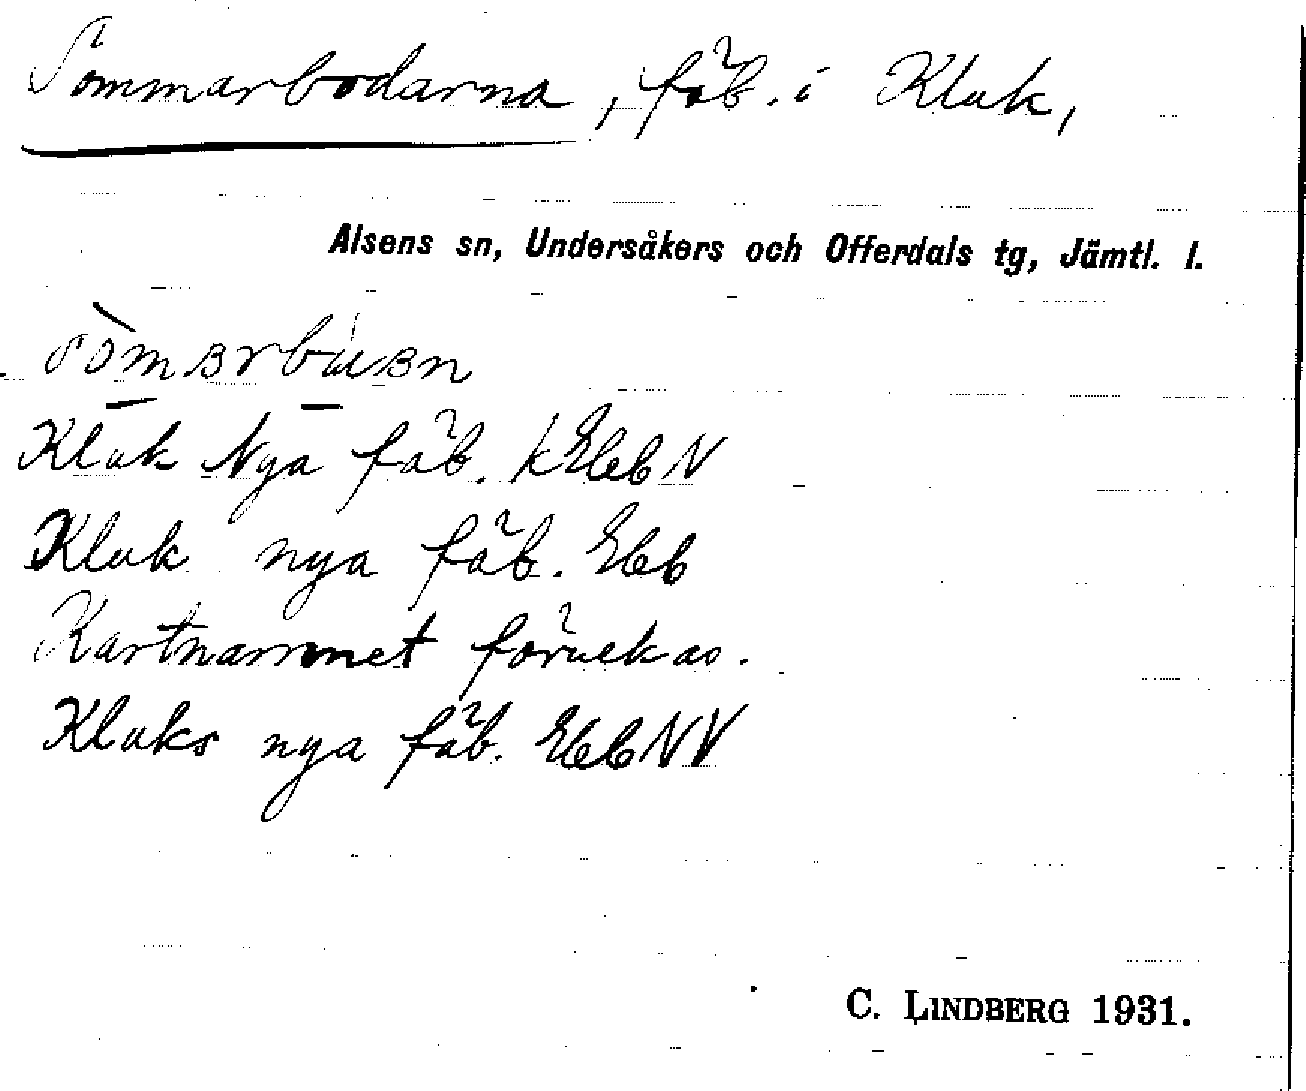 Sommarbodarna, fäb. i Kluk,
Alsens sn, Undersåkers och Offerdals tg, Jämtl. l.
Kluk Nya fäb. k Eleb N
Kluk nya fäb. Eleb
Kartnamnet förnekas.
Kluks nya fäb. Eleb NV
C. LINDBERG 1931.